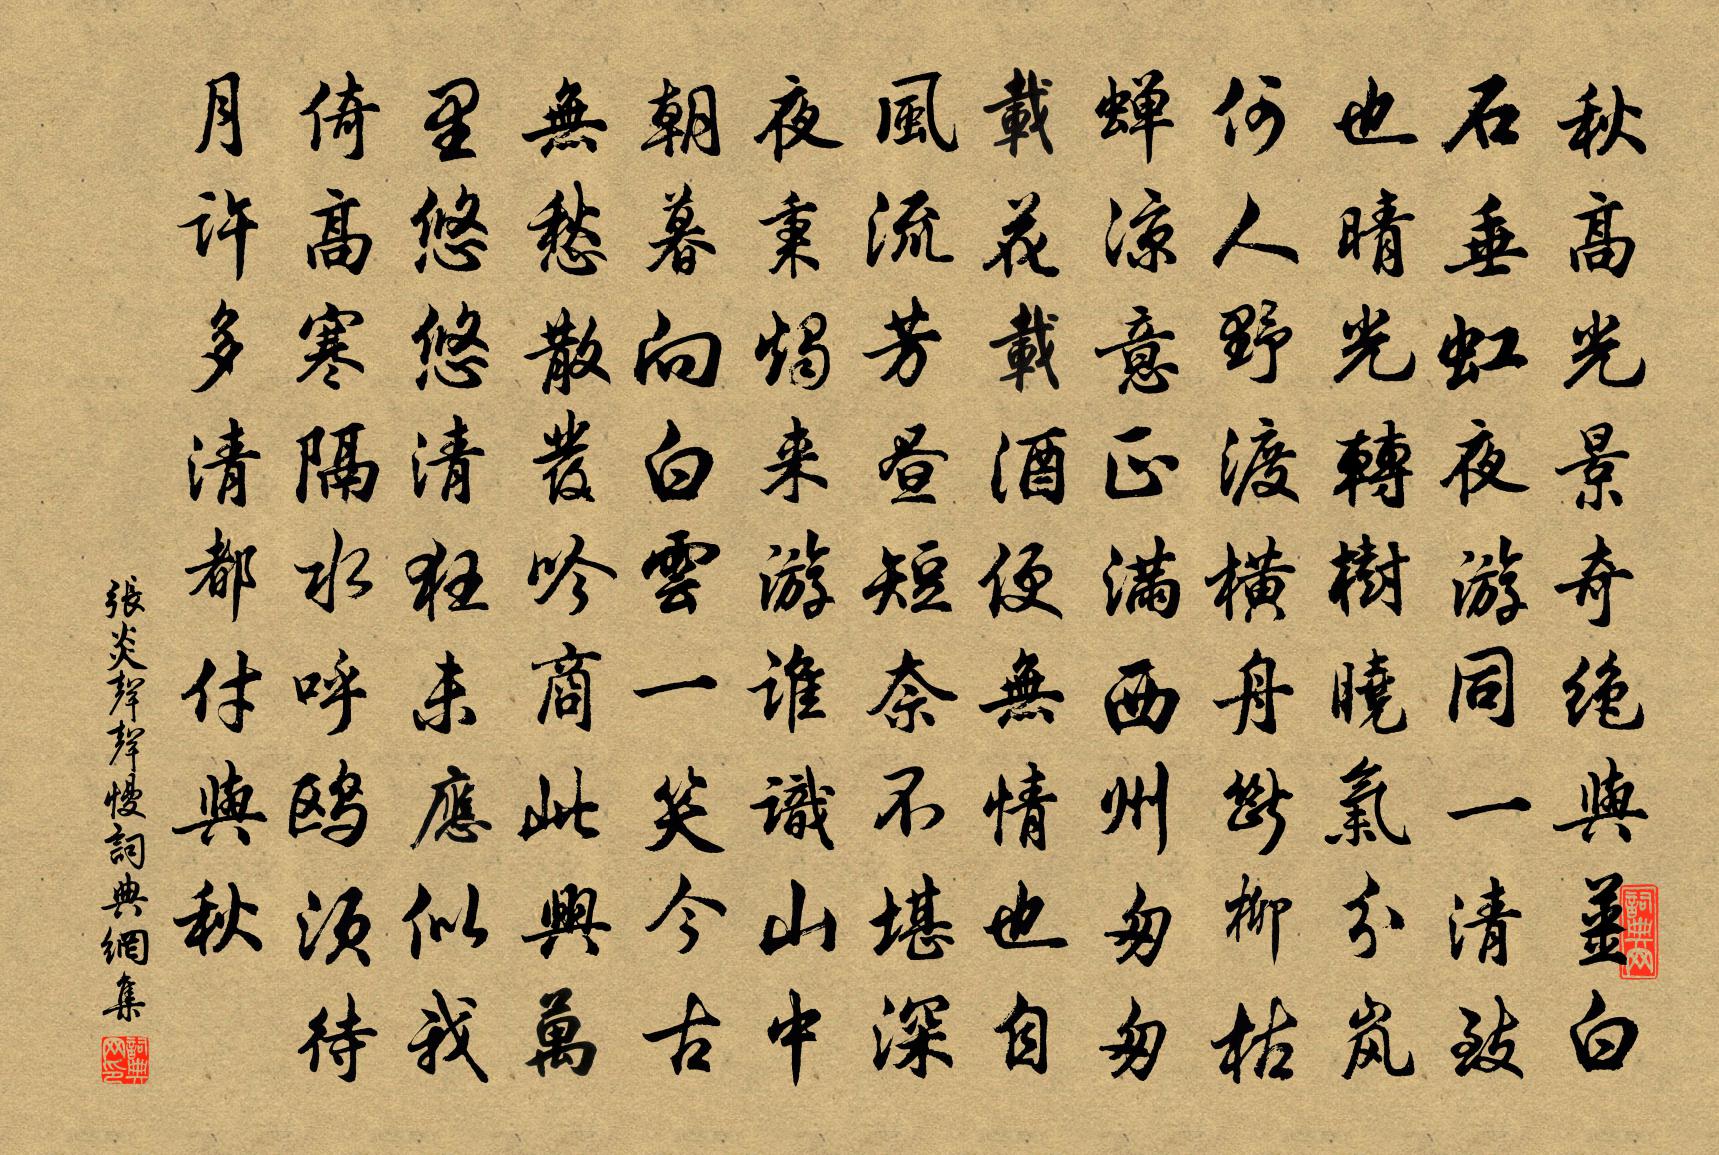 秋高光景奇绝與薑白
石垂虹夜游同一清致
也晴光轉樹曉氣分岚
何人野渡橫舟斷柳枯
蝉凉意正满西州匆匆
載花載酒便無情也自
風流芳昼短奈不堪深
夜秉燭来游谁識山中
朝暮向白雲一笑今古
無愁散發吟商此興萬
里悠悠清狂未應似我
倚高寒隔水呼鸥须待
月许多清都付與秋
張炎聲聲慢詞典網集
詞典网
詞典网印